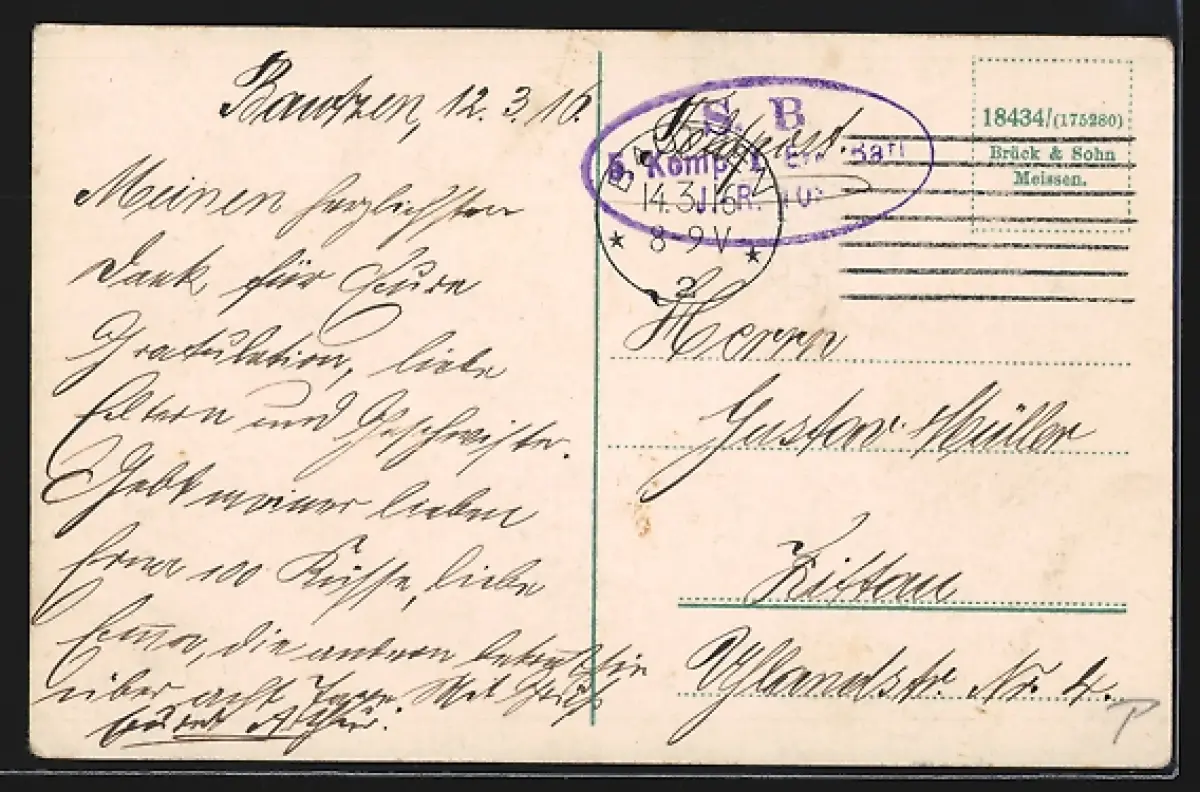 Bautzen, 12.3.16.
Meinen herzlichsten
Dank für Eure
Gratulation, liebe
Eltern und Geschwister.
Gebt meiner lieben
Erna 100 Küsse, liebe
Emma, die andern
über acht Tage. Mit Gruß
Euer Arthur.
Feldpost.
S. B
5. Komp. I. Ers. Batl
J. R.
BAUTZEN
14.3.16
8-9V
* 2 *
18434/(175280)
Brück & Sohn
Meissen.
Herrn
Gustav Müller
Zittau
Nr. 4.